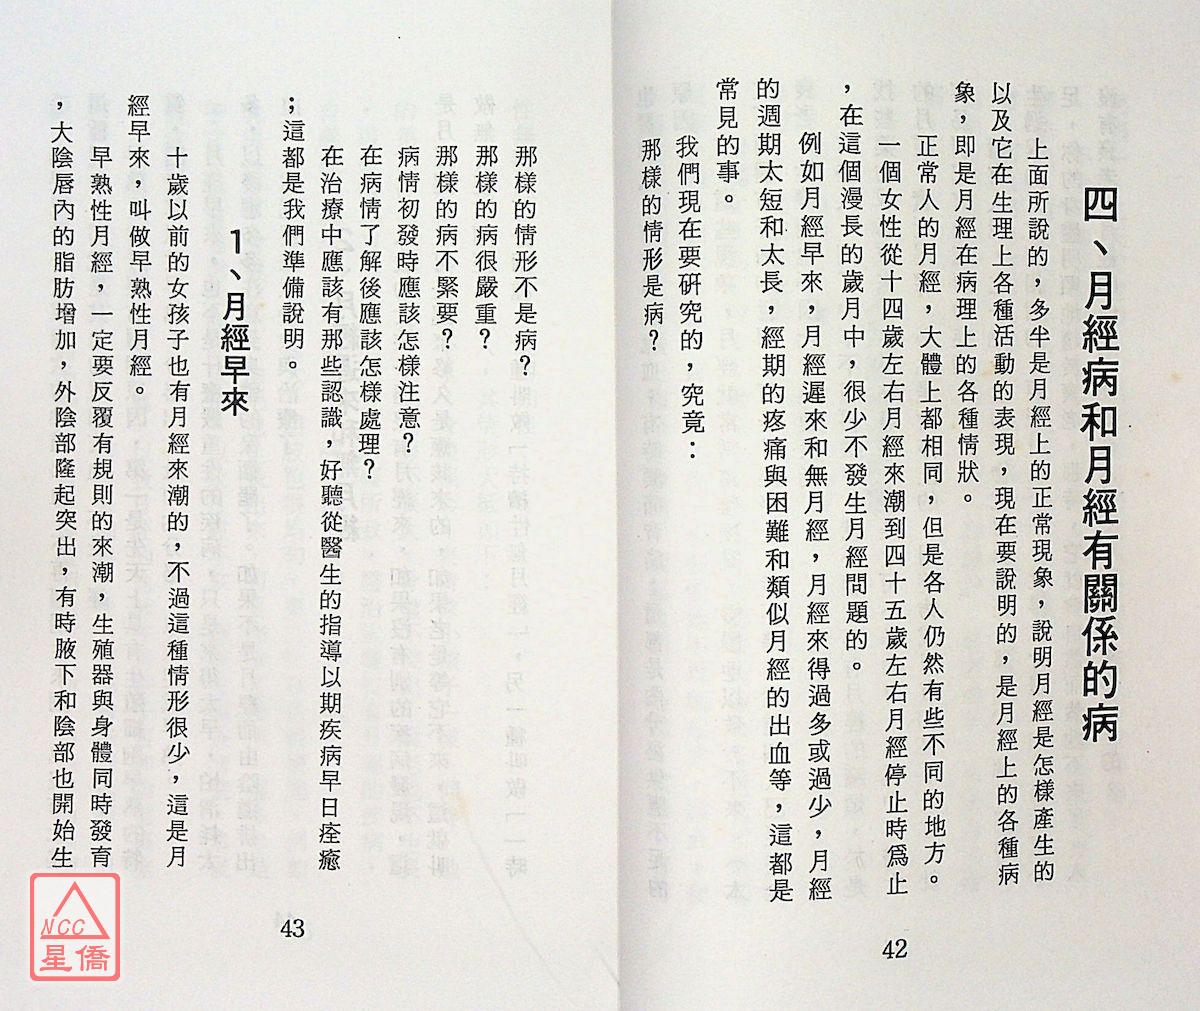 四、月經病和月經有關係的病
上面所說的，多半是月經上的正常現象，說明月經是怎樣產生的
以及它在生理上各種活動的表現，現在要說明的，是月經上的各種病
象，即是月經在病理上的各種情狀。
正常人的月經，大體上都相同，但是各人仍然有些不同的地方。
一個女性從十四歲左右月經來潮到四十五歲左右月經停止時爲止
，在這個漫長的歲月中，很少不發生月經問題的。
例如月經早來，月經遲來和無月經，月經來得過多或過少，月經
的週期太短和太長，經期的疼痛與困難和類似月經的出血等，這都是
常見的事。
我們現在要研究的，究竟：
那樣的情形是病？
42
那樣的情形不是病？
那樣的病很嚴重？
那樣的病不緊要？
病情初發時應該怎樣注意？
在病情了解後應該怎樣處理？
在治療中應該有那些認識，好聽從醫生的指導以期疾病早日痊癒
；這都是我們準備說明。
1、月經早來
十歲以前的女孩子也有月經來潮的，不過這種情形很少，這是月
經早來，叫做早熟性月經。
早熟性月經，一定要反覆有規則的來潮，生殖器與身體同時發育
，大陰唇內的脂肪增加，外陰部隆起突出，有時腋下和陰部也開始生
43
NCC
星僑